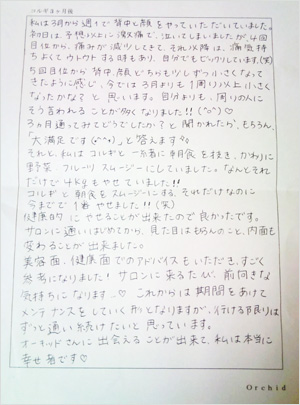 コルギ3ヶ月後
私は3月から週1で背中と顔をやっていただいていました。
初日は、予想以上に涙が出て、泣いてしまいましたが、4回
目位から、痛みが減少してきて、それ以降は、痛気持
ちよくてウトウトする時もあり、自分でもビックリしています。(笑)
5回目位から背中、顔どちらも少しずつ小さくなって
きたように感じ、今では3月よりも1周り以上小さく
なったかな?と思います。自分よりも、周りの人に
そう言われることが多くなりました!!(^o^)♡
3ヵ月通ってみてどうでしたか?と聞かれたら、もちろん、
「大満足です(^^)」と答えます。
それと、私はコルギと一緒に朝食を抜き、かわりに
野菜、フルーツスムージーにしていました。「なんとそれ
だけで4kgもやせていました!!
コルギと朝食をスムージーにする、それだけなのに
今までで1番やせました!!(笑)
健康的にやせることが出来たので良かったです。
サロンに通いはじめてから、見た目はもちろんのこと、内面も
変わることが出来ました。
美容面、健康面でのアドバイスもいただき、すごく
参考になりました!サロンに来るたび、前向きな
気持ちになります…♡これからは期間をあけて
メンテナンスをしていく形となりますが、行ける限りは
ずっと通い続けたいと思っています。
オーキッドさんに出会えることが出来て、私は本当に
幸せ者です♡
Orchid